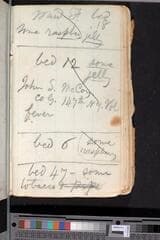 Ward A bed
15
some raspb jelly
bed 12 some
jelly
John S. McCoy
co G. 147th N.Y. Vol.
fever
bed 6 some
raspberry
bed 47 - some
tobacco & pipe